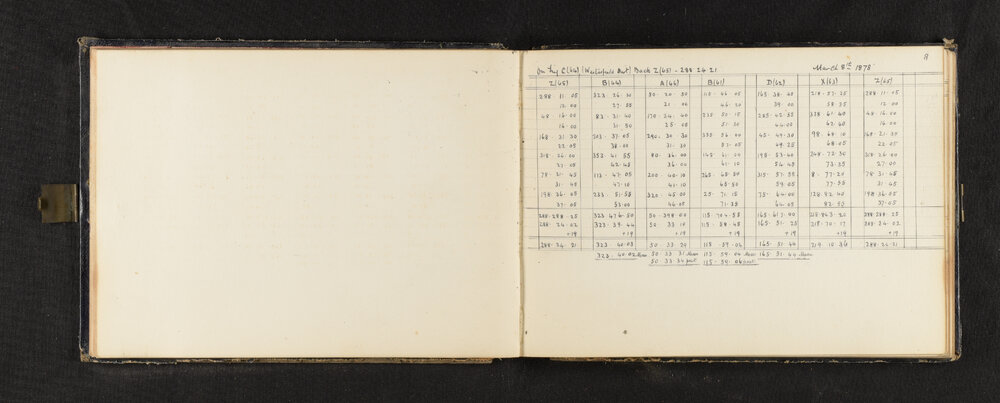 8
On Fig C(44) (Westerfield Hut) Back Z(45) - 288 24 21 March 8th 1878
Z(45) B(44) A(46) B(61) D(62) X(63) Z(45)
288 11 05 323 26 30 50 20 50 115 46 05 165 38 40 218 57 25 288 11 05
12 00 27 35 21 00 46 20 39 00 58 35 12 00
48 16 00 83 31 40 170 24 40 235 50 15 285 42 55 338 61 40 48 16 00
16 00 31 50 25 05 51 30 44 00 62 40 16 00
168 21 30 203 37 05 290 30 30 355 56 00 45 49 30 98 68 10 168 21 30
22 05 38 00 31 30 57 05 49 25 68 05 22 05
318 26 00 353 41 55 80 36 00 145 61 04 195 53 40 248 72 30 318 26 00
27 05 42 45 36 00 61 10 54 45 73 25 27 00
78 31 45 113 47 05 200 40 10 265 65 50 315 57 55 8 77 20 78 31 45
31 45 47 10 41 10 65 50 59 05 77 55 31 45
198 36 05 233 51 55 320 45 00 25 71 15 75 64 00 128 82 40 198 36 05
37 05 53 00 46 05 71 35 64 05 82 55 37 05
288 288 25 323 476 30 50 398 00 115 704 55 165 617 40 218 843 20 288 288 25
288 24 02 323 39 44 50 33 10 115 58 45 165 51 25 218 70 17 288 24 02
+19 +19 +19 +19 +19 +19 +19
288 24 21 323 40 03 50 33 29 115 59 04 165 51 44 219 10 36 288 24 21
323 40 02 Mean 50 33 31 Mean 115 59 04 Mean 165 51 44 Mean
50 33 34 prev 115 59 06 prev